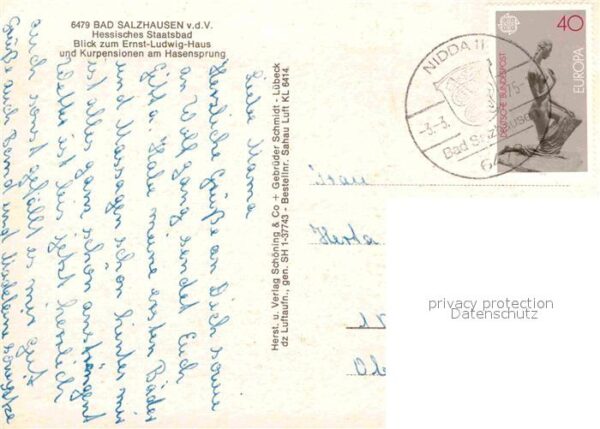 6479 BAD SALZHAUSEN v.d.V.
Hessisches Staatsbad
Blick zum Ernst-Ludwig-Haus
und Kurpensionen am Hasensprung
Herst. u. Verlag Schöning & Co + Gebrüder Schmidt - Lübeck
dz Luftaufn., gen. SH 1-37743 - Bestellnr. Sahau Luft KL 6414
Liebe Mama
Herzliche Grüße an Dich sowie
an Wolfgang sendet Euch
Gitta. Habe meine ersten Bäder
und Massagen schon hinter mir
ist alles ganz schön anstrengend
Wetter ist bis jetzt herrlich
auch sonst gefällt es mir gut
Grüße auch und
NIDDA 11
-3.-3. 75-
Bad Salzhausen
64
40
EUROPA
DEUTSCHE BUNDESPOST
CEPT
Frau
Herta
privacy protection
Datenschutz